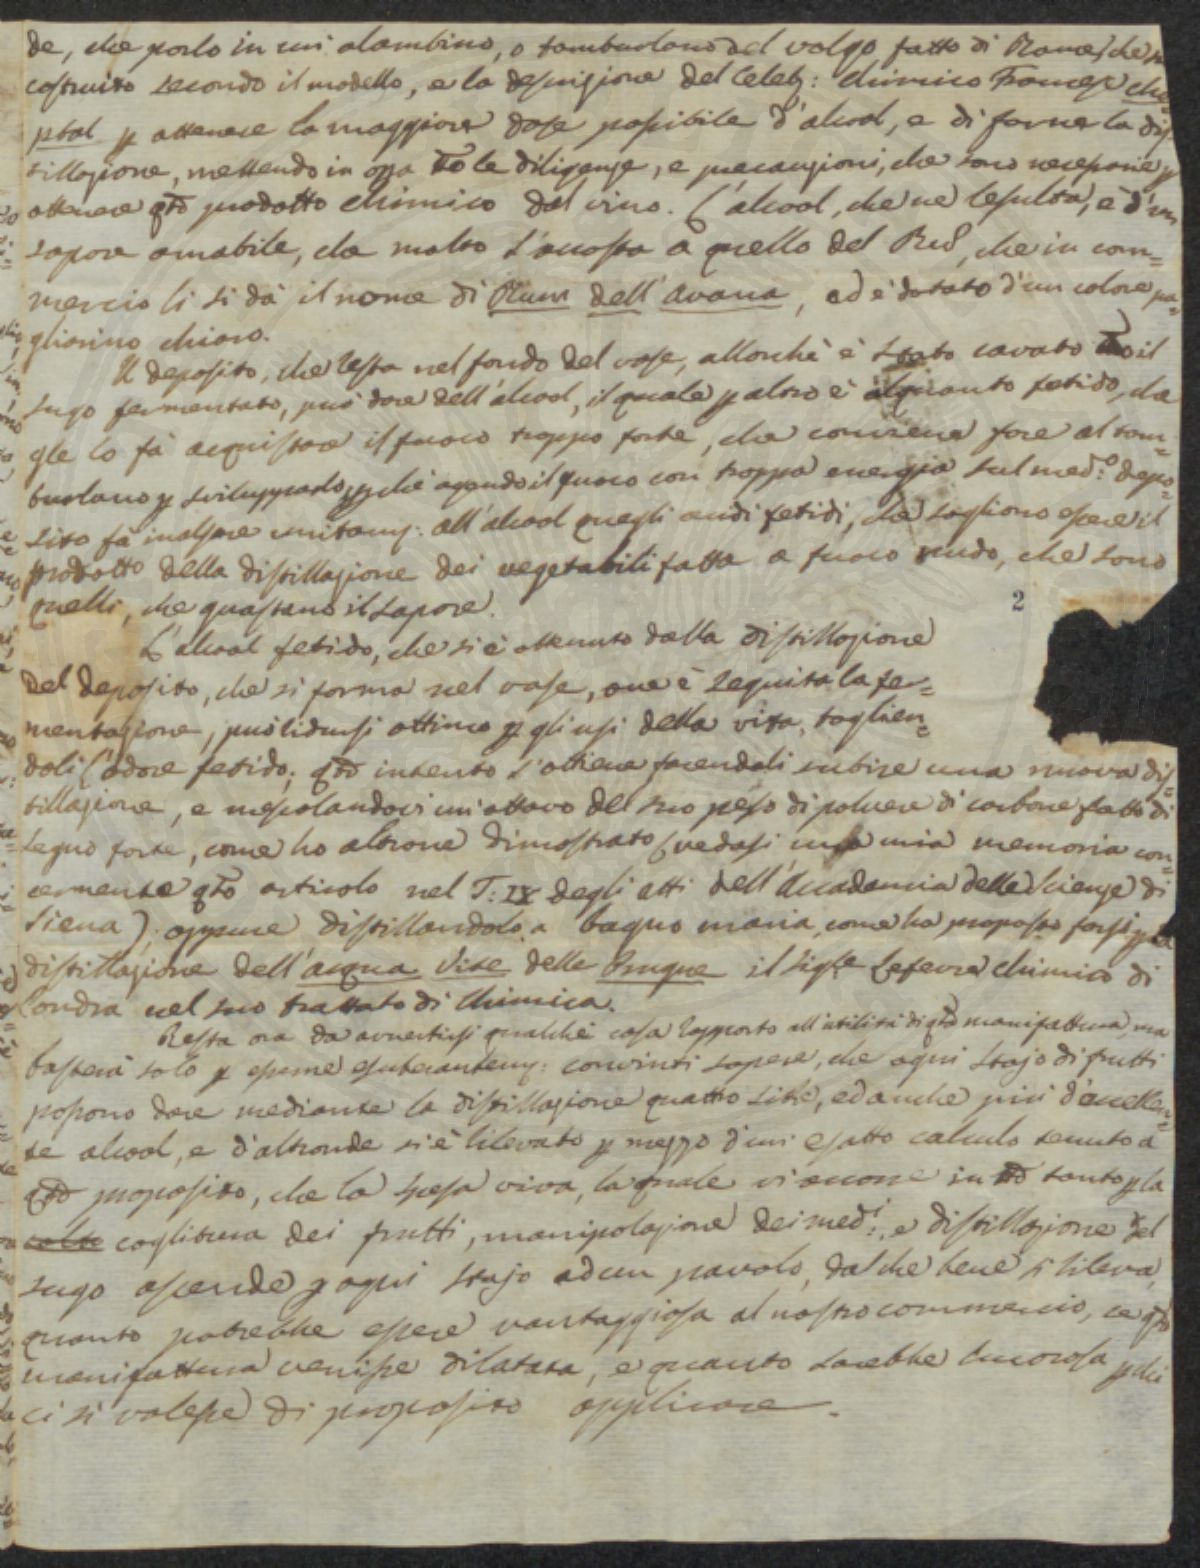 de, che porlo in un alambino, o tamburlano del volgo fatto di Rame, che
costruito secondo il modello, e la descrizione del Celeb: Chimico Francese Cha=
ptal p ottenere la maggiore dose possibile d'alcool, e di farne la dis
tillazione, mettendo in opa tte le diligenze, e precauzioni, che sono necessarie p
ottenere qto prodotto chimico del vino. L'alcool, che ne resulta, è d'un
sapore amabile, che molto s'accosta a quello del Rus, che in com=
mercio li si dà il nome di Rum dell'avana, ed è dotato d'un colore pa=
gliarino chiaro.
Il deposito, che resta nel fondo del vase, allorchè è stato cavato tto il
sugo fermentato, può dare dell'alcool, il quale p altro è alquanto fetido, da
qle lo fà acquistare il fuoco troppo forte, che conviene fare al tam=
burlano p svilupparlo, pchè agendo il fuoco con troppa energia sul med.o depo=
sito fà inalzare unitam: all'alcool quegli acidi fetidi, che sogliono essere il
prodotto della distillazione dei vegetabili fatta a fuoco nudo, che sono
quelli, che guastano il sapore.
2
L'alcool fetido, che si è ottenuto dalla distillazione
del deposito, che si forma nel vase, ove è seguita la fer=
mentazione, può ridursi ottimo p gli usi della vita, toglien=
doli l'odore fetido; qto intento s'ottiene facendoli subire una nuova dis=
tillazione, e mescolandovi un'ottavo del suo peso di polvere di carbone fatto di
legno forte, come ho altrove dimostrato (vedasi una mia memoria con=
cernente qto articolo nel T. IX degli atti dell'Accademia delle Scienze di
Siena); oppure distillandolo a bagno maria, come ha proposto farsi p la
distillazione dell'acqua vite delle Prugne il Sigle Lefevre chimico di
Londra nel suo trattato di Chimica.
Resta ora da avvertirsi qualche cosa rapporto all'utilità di qta manifattura, ma
basterà solo p esserne esuberantem: convinti sapere, che ogni stajo di frutti
possono dare mediante la distillazione quattro libe, ed anche più d'eccellen=
te alcool, e d'altronde si è rilevato p mezzo d'un esatto calcolo tenuto a
qto proposito, che la spesa viva, la quale vi occorre in tto tanto p la
colte coglitura dei frutti, manipolazione dei med.i, e distillazione del
sugo ascende p ogni stajo ad un pavolo, dal che bene si rileva,
quanto potrebbe essere vantaggiosa al nostro commercio, se qta
manifattura venisse dilatata, e quanto sarebbe lucrosa p chi
ci si volesse di proposito applicare.